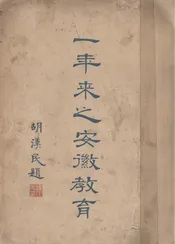 一年来之安徽教育
胡漢民題